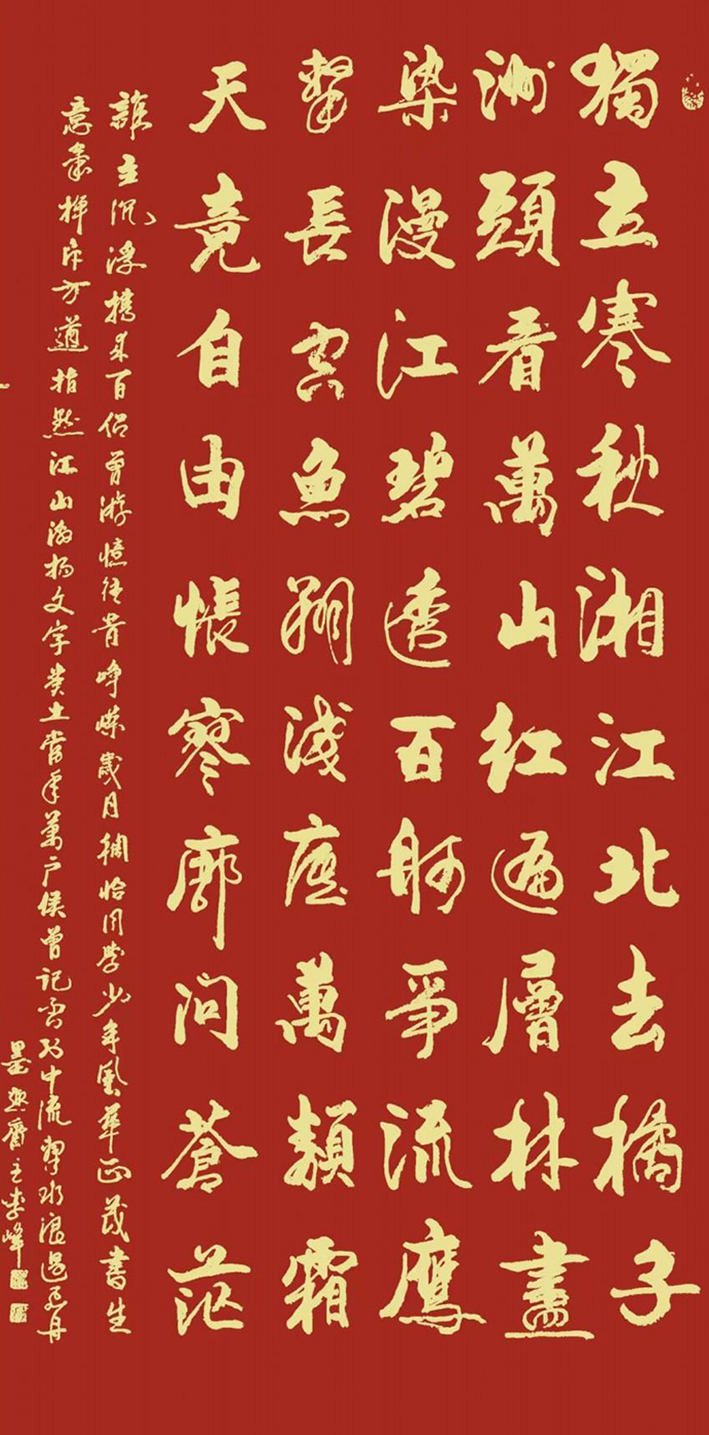 獨立寒秋湘江北去橘子
洲頭看萬山紅遍層林盡
染漫江碧透百舸爭流鷹
擊長空魚翔淺底萬類霜
天竟自由悵寥廓问蒼茫
誰主沉浮攜來百侶曾游憶往昔崢嶸歲月稠恰同學少年風華正茂書生
意氣揮斥方遒指點江山激揚文字糞土當年萬戶侯曾記否到中流擊水浪遏飛舟
墨趣齋主李峰